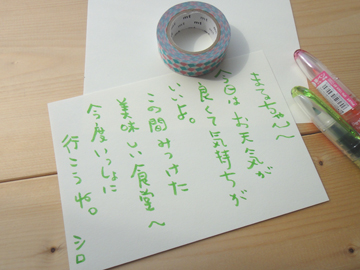 まこちゃんへ
今日はお天気が
良くて気持ちが
いいよ。
この間みつけた
美味しい食堂へ
今度いっしょに
行こうね。 シロ